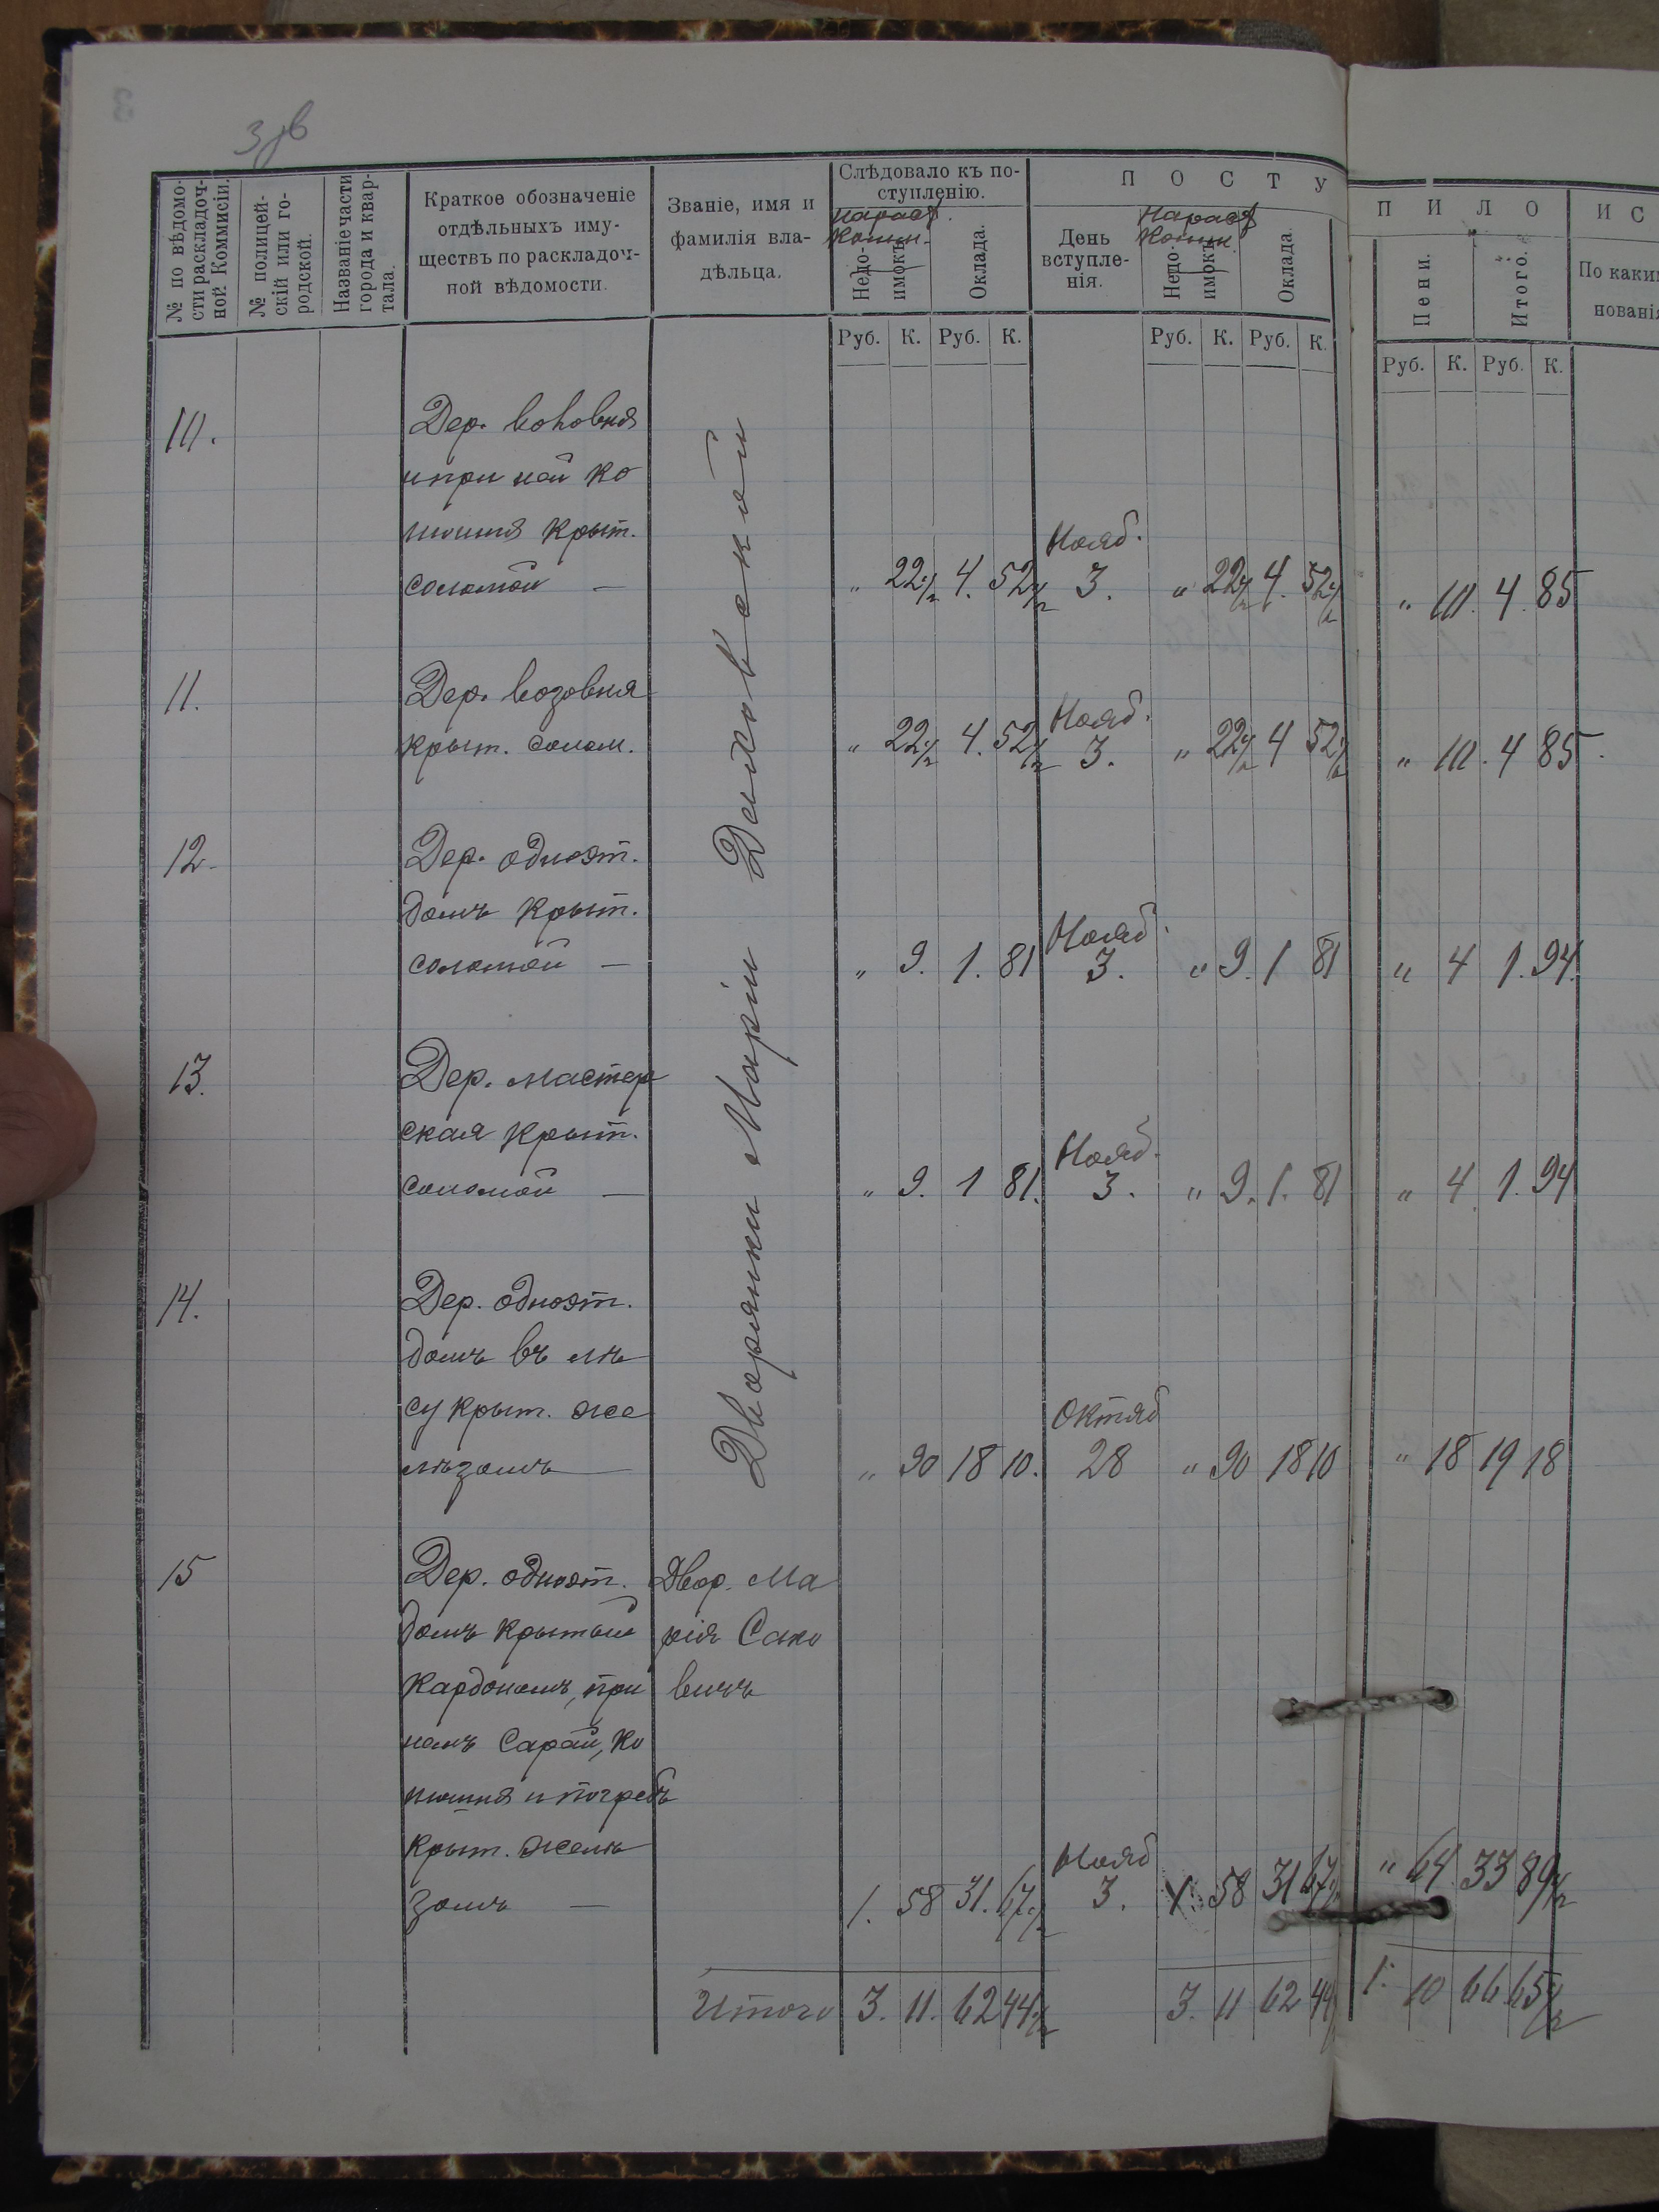 № по вѣдомо-
сти раскладоч-
ной Коммисіи.
№ полицей-
скій или го-
родской.
Названіе части
города и квар-
тала.
Краткое обозначеніе
отдѣльныхъ иму-
ществъ по раскладоч-
ной вѣдомости.
Званіе, имя и
фамилія вла-
дѣльца.
Слѣдовало къ по-
ступленію.
Недо-
имокъ
Оклада.
П О С Т У
День
вступле-
нія.
Недо-
имокъ
Оклада.
П И Л О
Пени.
Итого.
И С
По каки
нованія
Руб. К. Руб. К. Руб. К. Руб. К. Руб. К. Руб. К.
10.
Дер.
и при ней ко
нюшня крыт.
соломой —
„ 22½ 4. 52½ Нояб. 3. „ 22½ 4. 52½ „ 10. 4. 85
11.
Дер. возовня
крыт. солом.
„ 22½ 4. 52½ Нояб. 3. „ 22½ 4 52½ „ 10. 4 85.
12.
Дер. одноэт.
домъ крыт.
соломой —
„ 9. 1. 81 Нояб. 3. „ 9. 1 81 „ 4 1. 94.
13.
Дер. мастер
ская крыт.
соломой —
„ 9. 1 81. Нояб. 3. „ 9. 1. 81 „ 4 1. 94
14.
Дер. одноэт.
домъ въ лѣ
су крыт. же
лѣзомъ —
Дворянки Маріи
„ 90 18 10. Октяб 28 „ 90 18 10 „ 18 19 18
15
Дер. одноэт.
домъ крытый
кардономъ, при
немъ сарай, ко
нюшня и погребъ
крыт. желѣ
зомъ —
Двор. Ма
рія Сако
вичъ
1. 58 31. 67½ Нояб 3. 1. 58 31 67½ „ 64 33 89½
Итого 3. 11. 62 44½ 3. 11 62 44½ 1. 10 66 65½